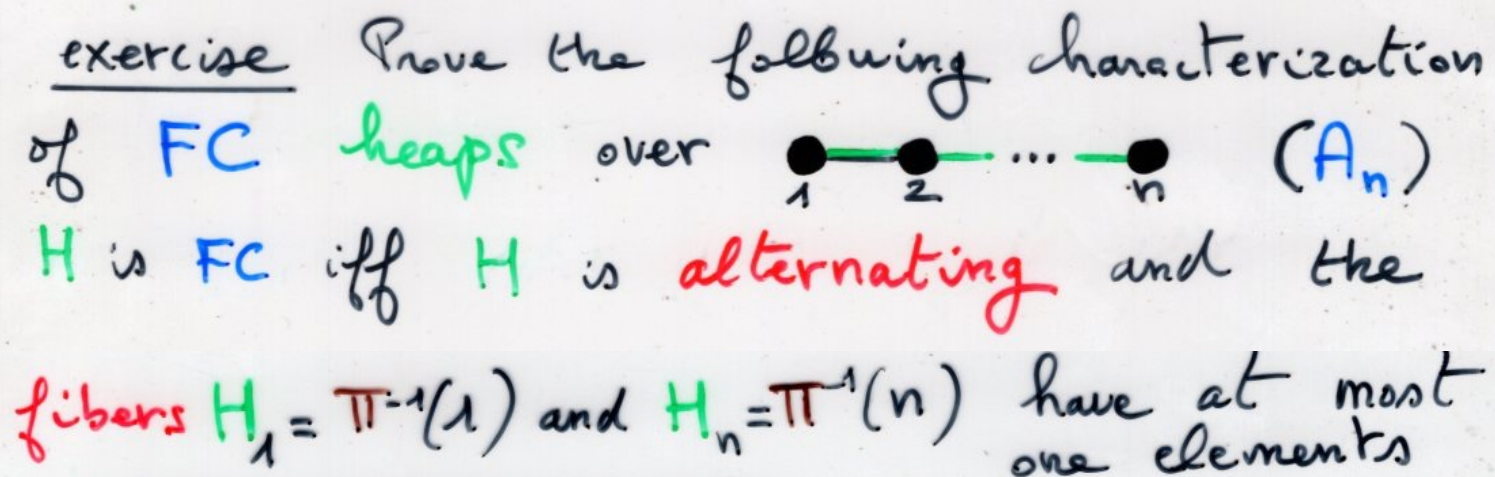 exercise Prove the following characterization
of FC heaps over 1 2 ... n (An)
H is FC iff H is alternating and the
fibers H₁ = π⁻¹(1) and Hₙ = π⁻¹(n) have at most
one elements